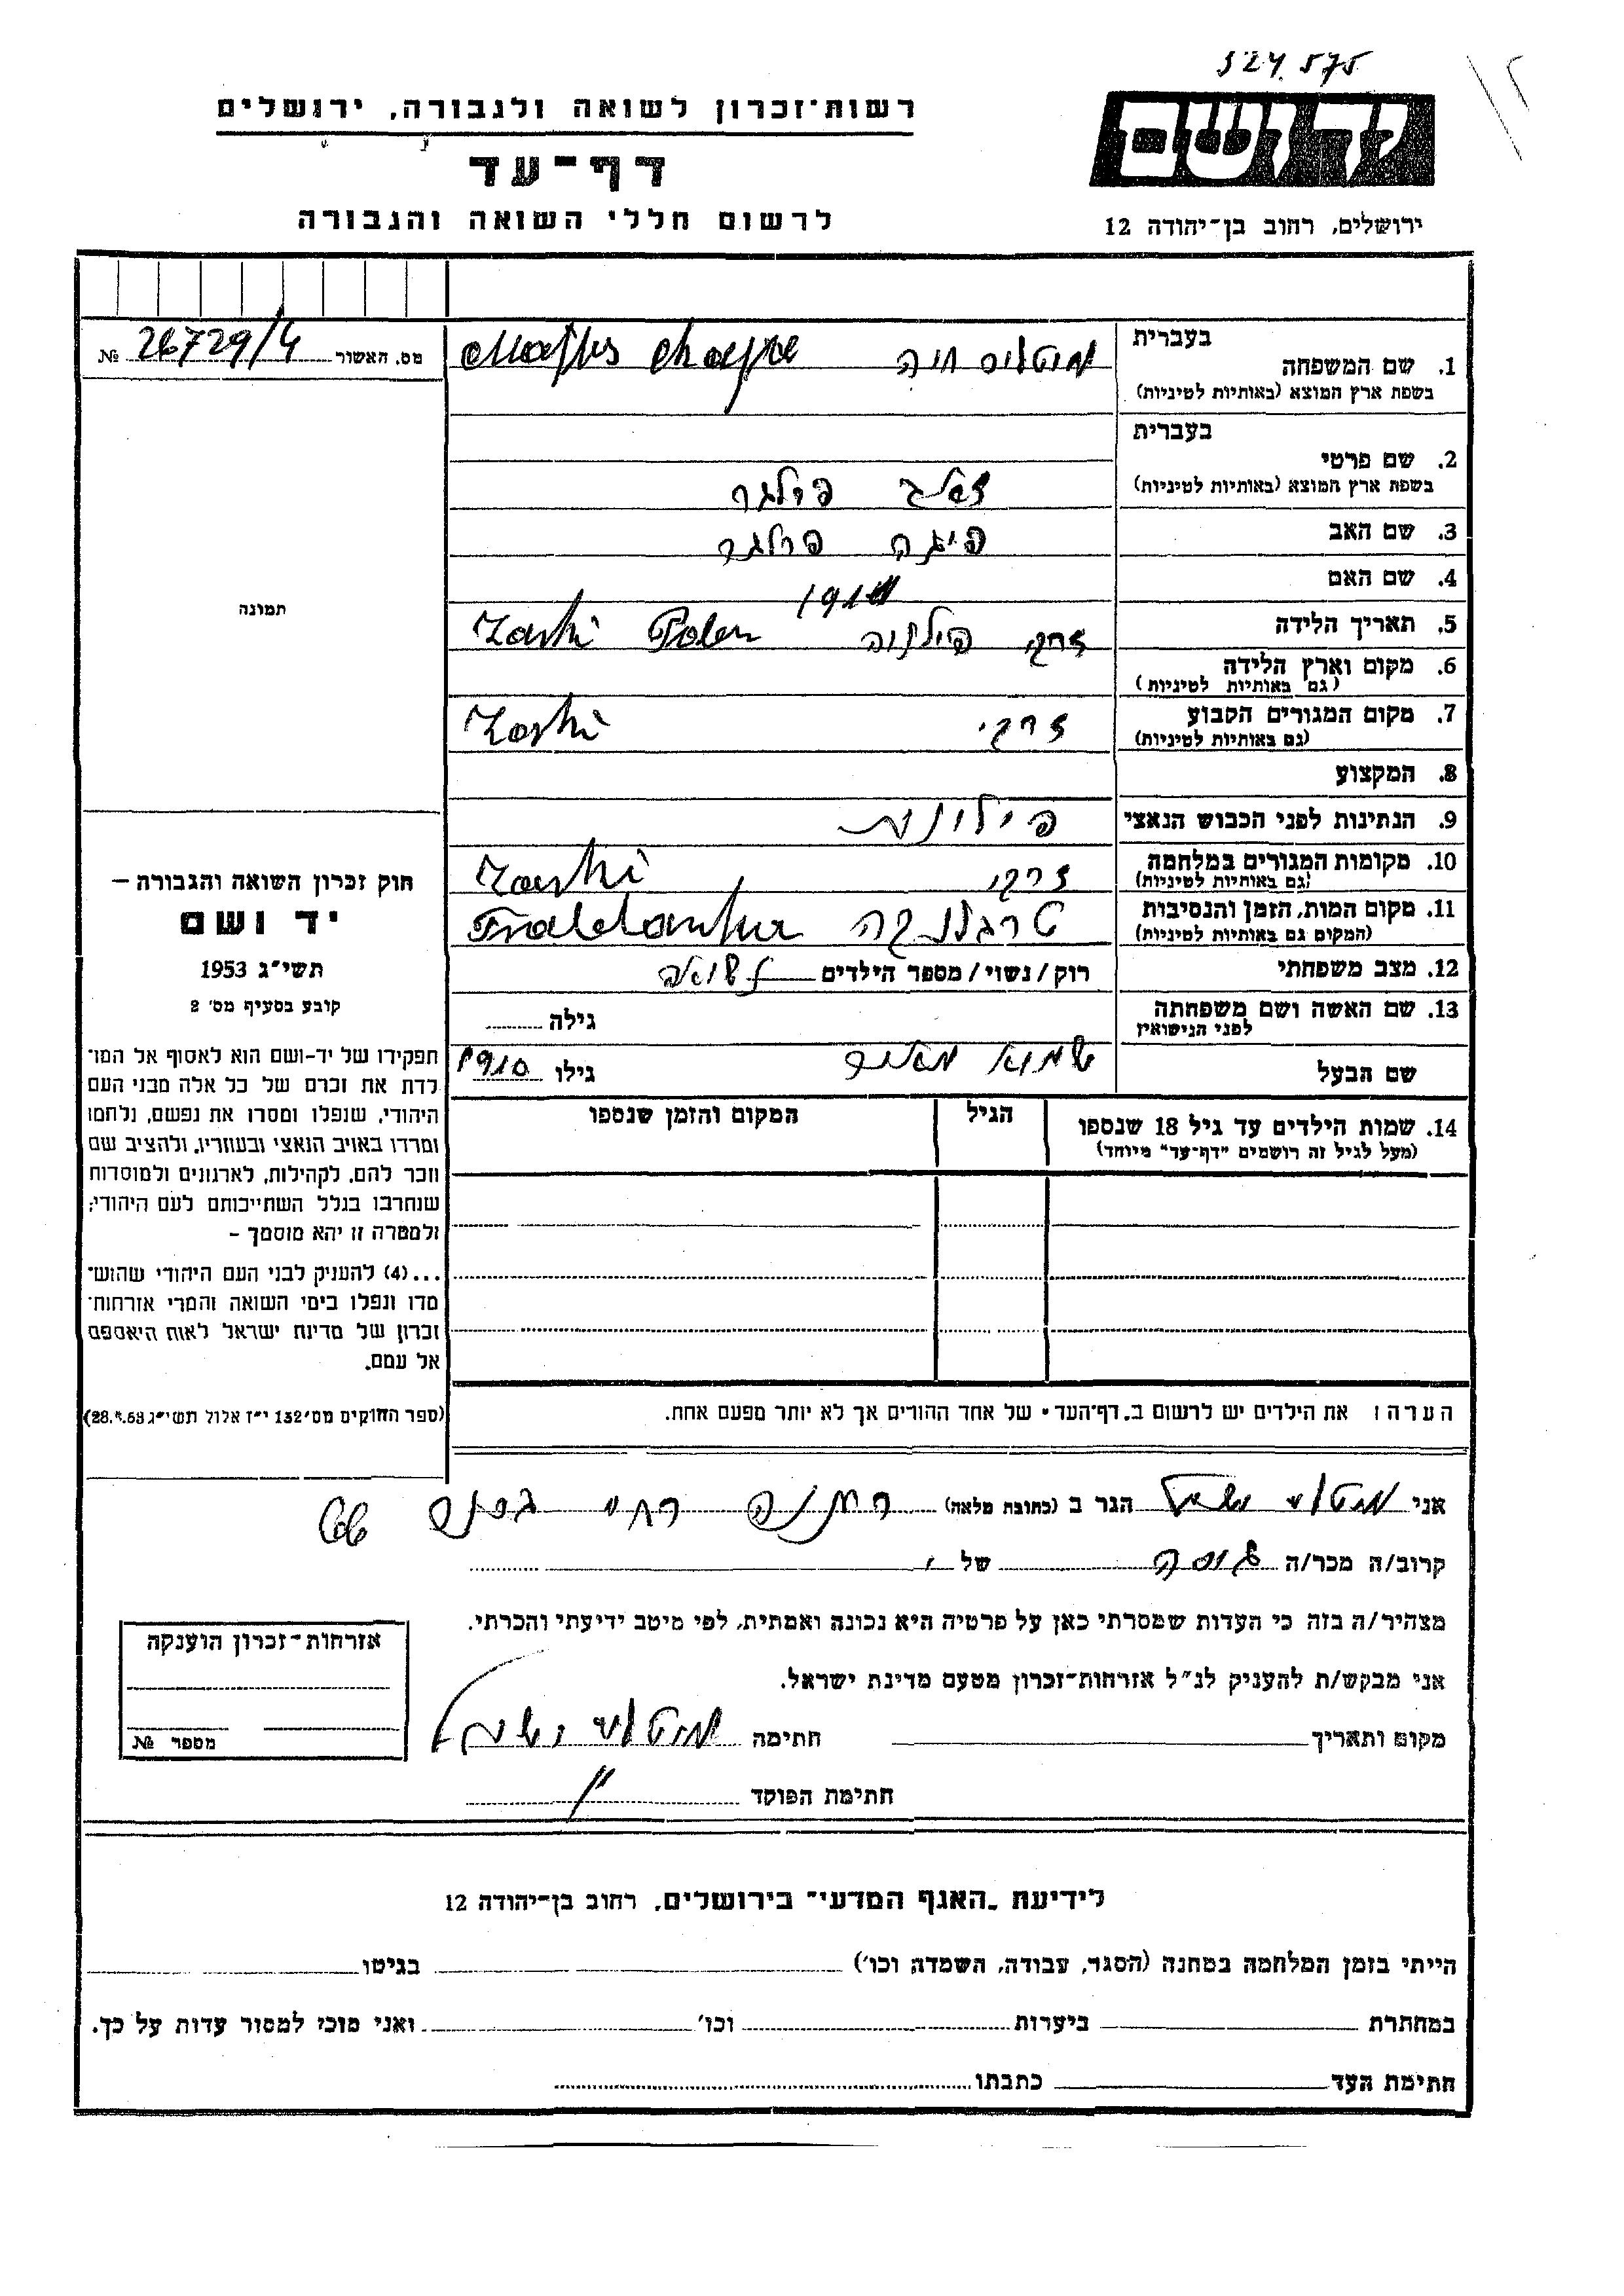 324.575
רשות-זכרון לשואה ולגבורה, ירושלים
יד ושם
דף-עד
לרשום חללי השואה והגבורה
ירושלים, רחוב בן-יהודה 12
בעברית
1. שם המשפחה
בשפת ארץ המוצא (באותיות לטיניות)
חיה
מס. האשור № 26729/4
בעברית
2. שם פרטי
בשפת ארץ המוצא (באותיות לטיניות)
3. שם האב
4. שם האם
5. תאריך הלידה
6. מקום וארץ הלידה
(גם באותיות לטיניות)
זרקי Polen Zarki
7. מקום המגורים הקבוע
(גם באותיות לטיניות)
זרקי Zarki
8. המקצוע
9. הנתינות לפני הכבוש הנאצי
פילונית
10. מקומות המגורים במלחמה
(גם באותיות לטיניות)
זרקי Zarki
11. מקום המות, הזמן והנסיבות
(המקום גם באותיות לטיניות)
12. מצב משפחתי
רוק/נשוי/מספר הילדים נשואה
13. שם האשה ושם משפחתה
לפני הנישואין
גילה
שם הבעל
גילו 1910
תמונה
חוק זכרון השואה והגבורה –
יד ושם
תשי"ג 1953
קובע בסעיף מס' 2
תפקידו של יד-ושם הוא לאסוף אל המו־
לדת את זכרם של כל אלה מבני העם
היהודי, שנפלו ומסרו את נפשם, נלחמו
ומרדו באויב הנאצי ובעוזריו, ולהציב שם
וזכר להם, לקהילות, לארגונים ולמוסדות
שנחרבו בגלל השתייכותם לעם היהודי;
ולמטרה זו יהא מוסמך –
...(4) להעניק לבני העם היהודי שהוש־
מדו ונפלו בימי השואה והמרי אזרחות־
זכרון של מדינת ישראל לאות היאספם
אל עמם.
(ספר החוקים מס' 132 י"ז אלול תשי"ג 28.8.53)
14. שמות הילדים עד גיל 18 שנספו
(מעל לגיל זה רושמים "דף-עד" מיוחד)
הגיל
המקום והזמן שנספו
הערה: את הילדים יש לרשום ב"דף-העד" של אחד ההורים אך לא יותר מפעם אחת.
אני
הגר ב (כתובת מלאה)
קרוב/ה מכר/ה גיסה של
מצהיר/ה בזה כי העדות שמסרתי כאן על פרטיה היא נכונה ואמתית, לפי מיטב ידיעתי והכרתי.
אני מבקש/ת להעניק לנ"ל אזרחות-זכרון מטעם מדינת ישראל.
מקום ותאריך
חתימה
חתימת הפוקד
אזרחות-זכרון הוענקה
מספר №
לידיעת "האגף המדעי" בירושלים, רחוב בן-יהודה 12
הייתי בזמן המלחמה במחנה (הסגר, עבודה, השמדה וכו')
בגיטו
במחתרת
ביערות
וכו'
ואני מוכן למסור עדות על כך.
חתימת העד
כתבתו